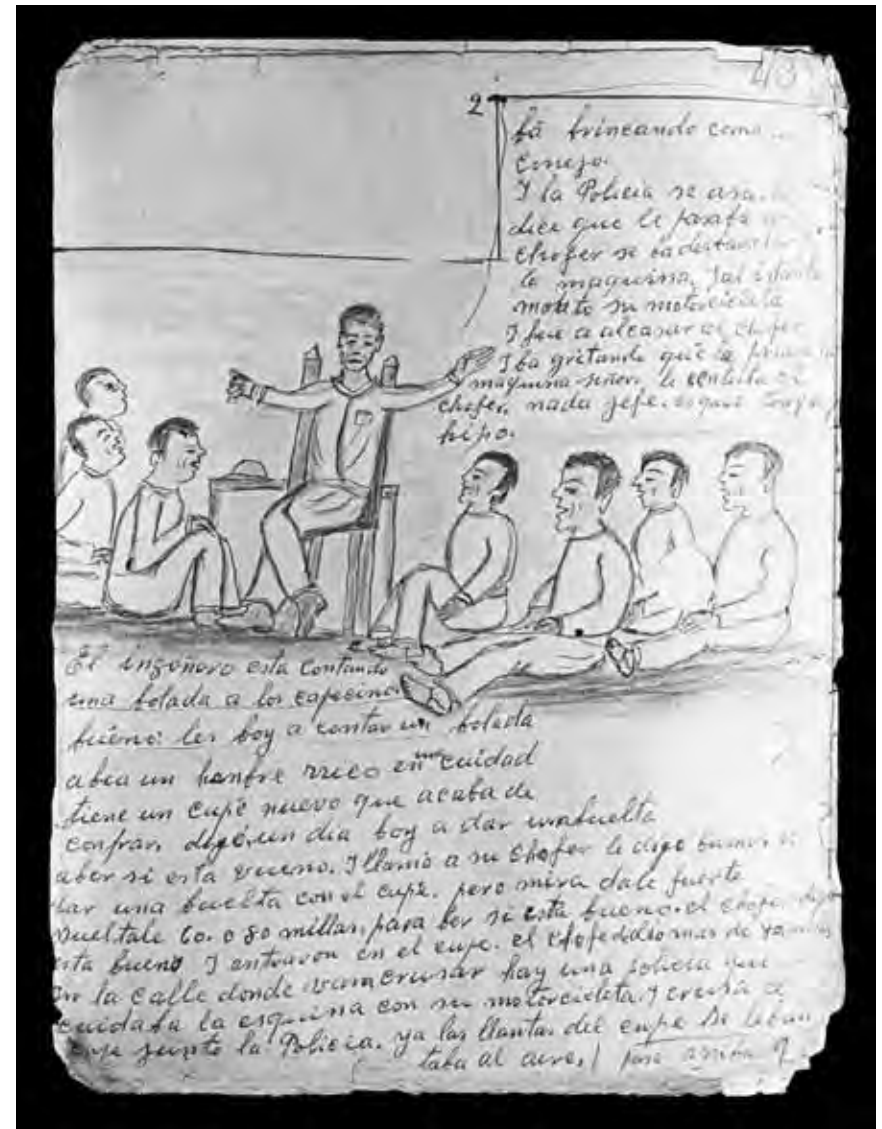 43
2
ba brincando como
Conejo.
I la Policia se
dice que le pasaba
Chofer se
la maquina, I al istante
monto su motorcicleta
I fue a alcansar al chofer
I ba gritando que le pasa la
maquina señor, le contesta el
chofer, nada jefe. es que traja
hipo.
El ingeñero esta Contando
una bolada a los capecinos
buéno: les boy a contar un bolada
abia un honbre rrico en una cuidad
tiene un cupé nuevo que acaba de
conprar, digo, un dia boy a dar unabuelta
aber si esta vueno. I llamó a su chofer le digo bamos a
dar una buelta con el cupé. pero mira dale fuerte
sueltale 60. o 80 millas, para ber si esta bueno. el chofer digo
esta bueno I entraron en el cupe. el chofe mas de
en la Calle donde van crusar hay una policia que
cuidaba la esquina con su motorcicleta. I crusa el
cupe junto la Policia. ya las llantas del cupe se leban
taba al aire, / pase arriba 2.